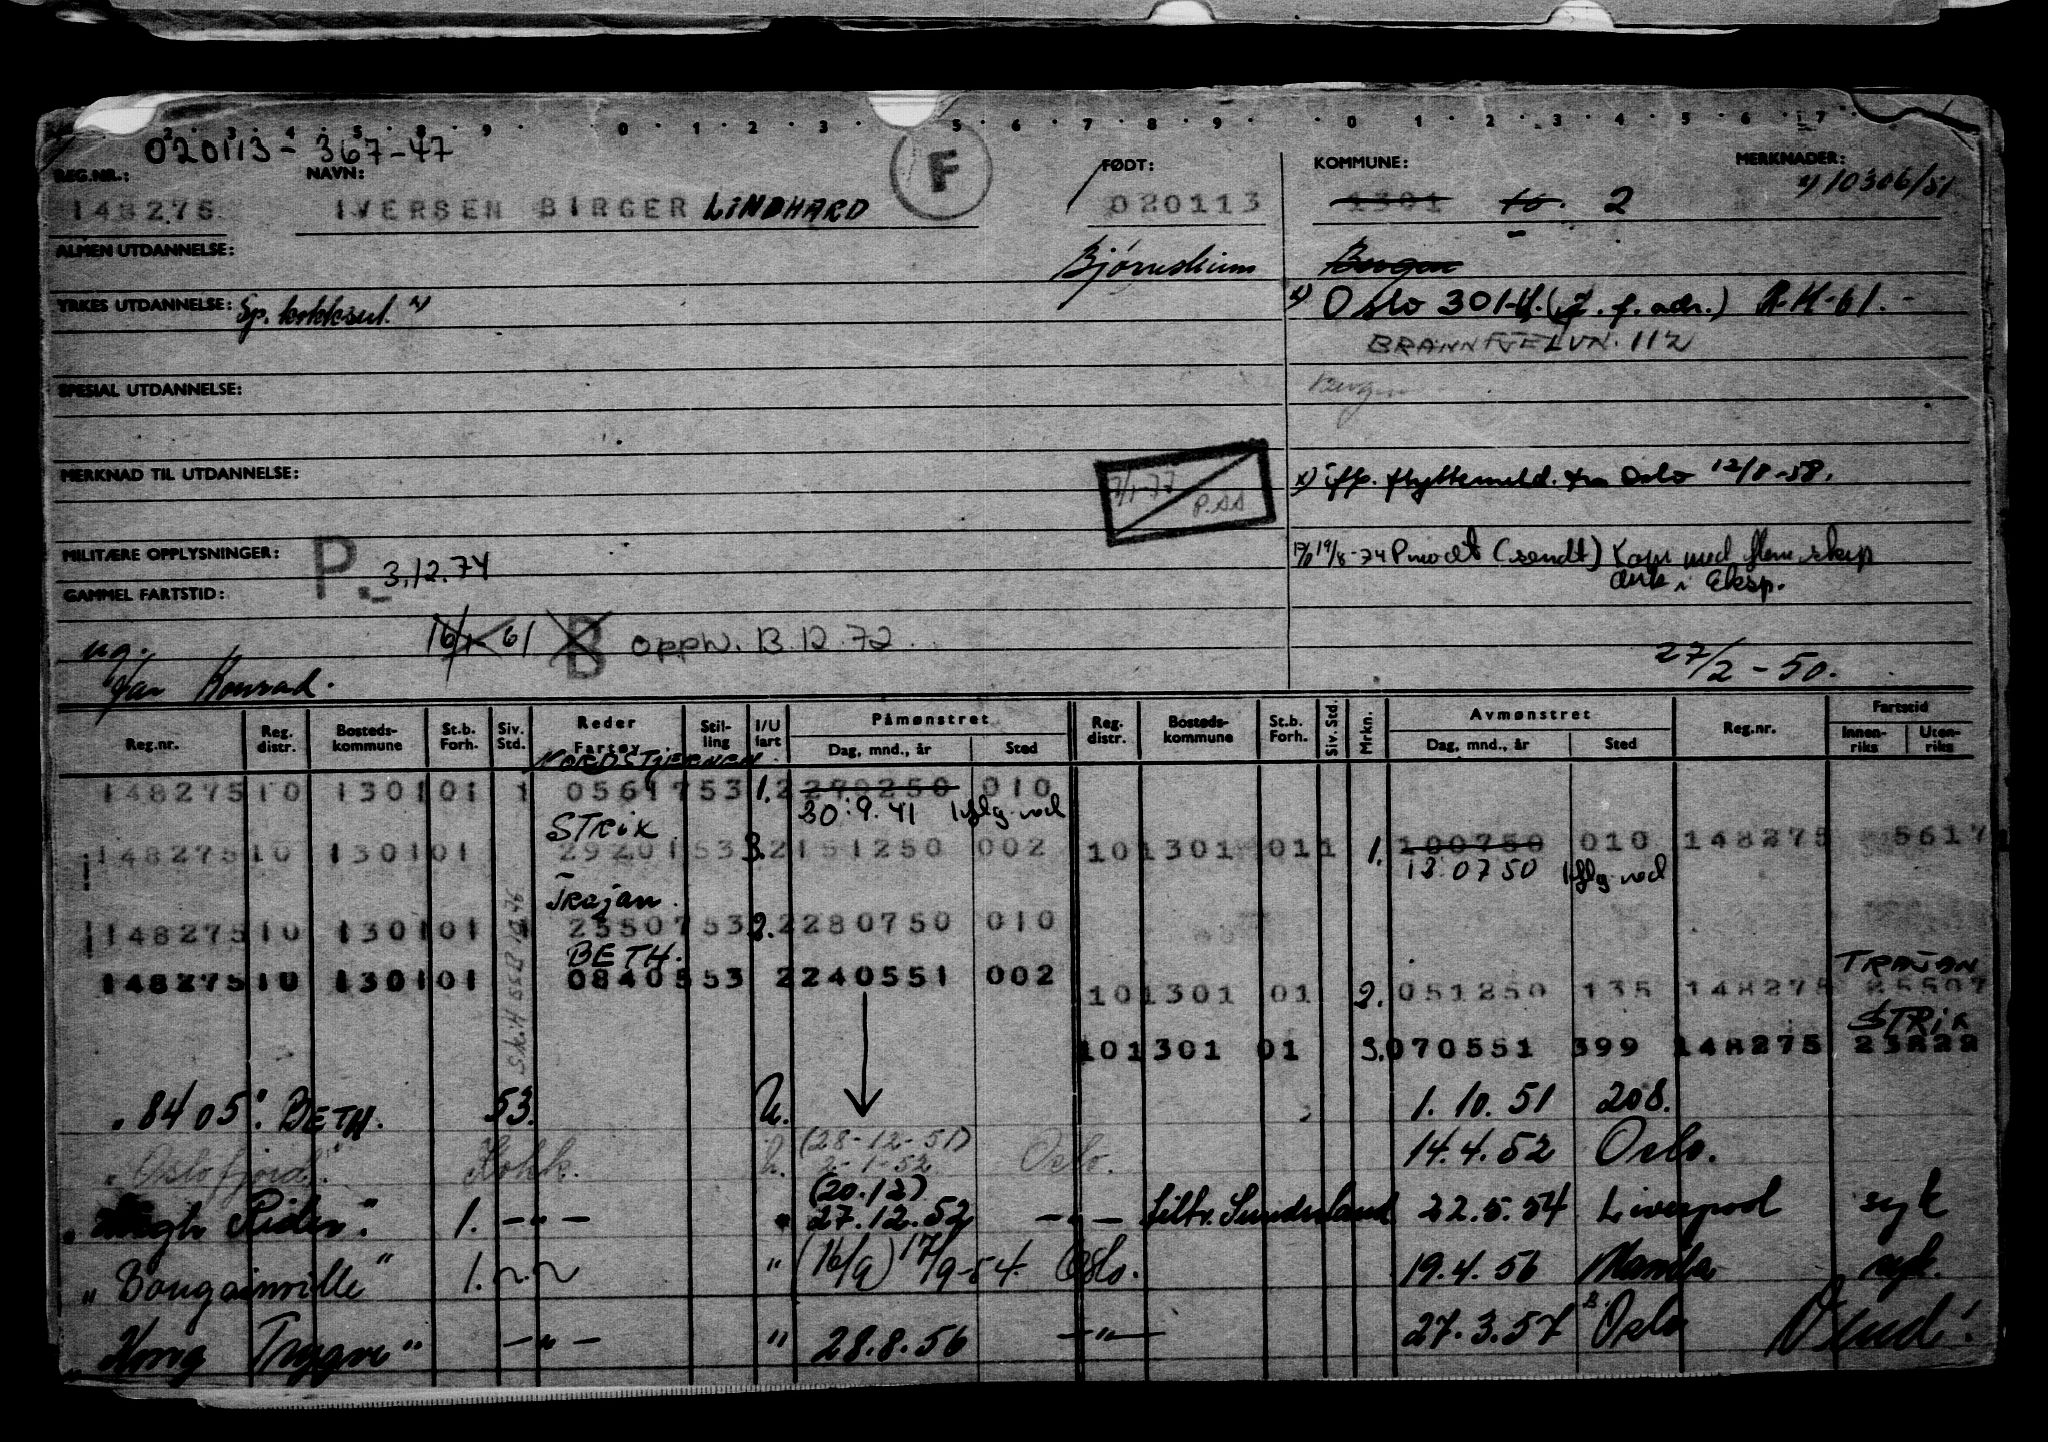 020113 - 367-47
REG.NR.: NAVN: F FØDT: KOMMUNE: MERKNADER:
148275 IVERSEN BIRGER LINDHARD 020113 1301 to. 2 x) 10306/51
ALMEN UTDANNELSE: Bergen
YRKES UTDANNELSE: Sp. kokksert. x) Oslo 301-H. f. adr.)
BRANNFJELVN. 112
SPESIAL UTDANNELSE: Bergen
MERKNAD TIL UTDANNELSE: x) ifp. flyttemeld. fra Oslo 12/8-58.
MILITÆRE OPPLYSNINGER: P. 3.12.74 19/8-74 P modt (sendt) Kom med flere skip
GAMMEL FARTSTID: ark i Eksp.
ug. 16/1 61 B oppn. 13.12.72.
Jan Konrad. 27/2-50.
Reg.nr. Reg. distr. Bosteds-kommune St.b. Forh. Siv. Std. Reder Fartøy Stil-ling I/U fart Påmønstret Reg. distr. Bosteds-kommune St.b. Forh. Siv. Std. Mrkn. Avmønstret Reg.nr. Fartstid
Dag, mnd., år Sted Dag, mnd., år Sted Innen-riks Uten-riks
NORDSTJERNEN
148275 10 1301 01 1 05617 53 1. 2 270250 010
STRIX 30.9.41
148275 10 1301 01 29201 53 3. 2 151250 002 10 1301 01 1 1. 100750 010 148275 5617
13.07 50
Trajan.
148275 10 1301 01 1 25507 53 2. 2 280750 010
BETH. TRAJAN
148275 10 1301 01 08405 53 2 240551 002 10 1301 01 2. 051250 135 148275 25507
STRIX
10 1301 01 3. 070551 399 148275 23822
"8405". BETH. 53. U. 1.10.51 208.
"Oslofjord" Kokk. U. (28-12-51) 2-1-52 Oslo. 14.4.52 Oslo.
1. —"— " (20.12) 27.12.52 —"— Sunderland 22.5.54 Liverpool syk
"Bougainville" 1. " (16/9) 17/9-54. Oslo. 19.4.56 Manila syk.
"Kong Trygve" —"— " 28.8.56 —"— 27.3.57 Oslo